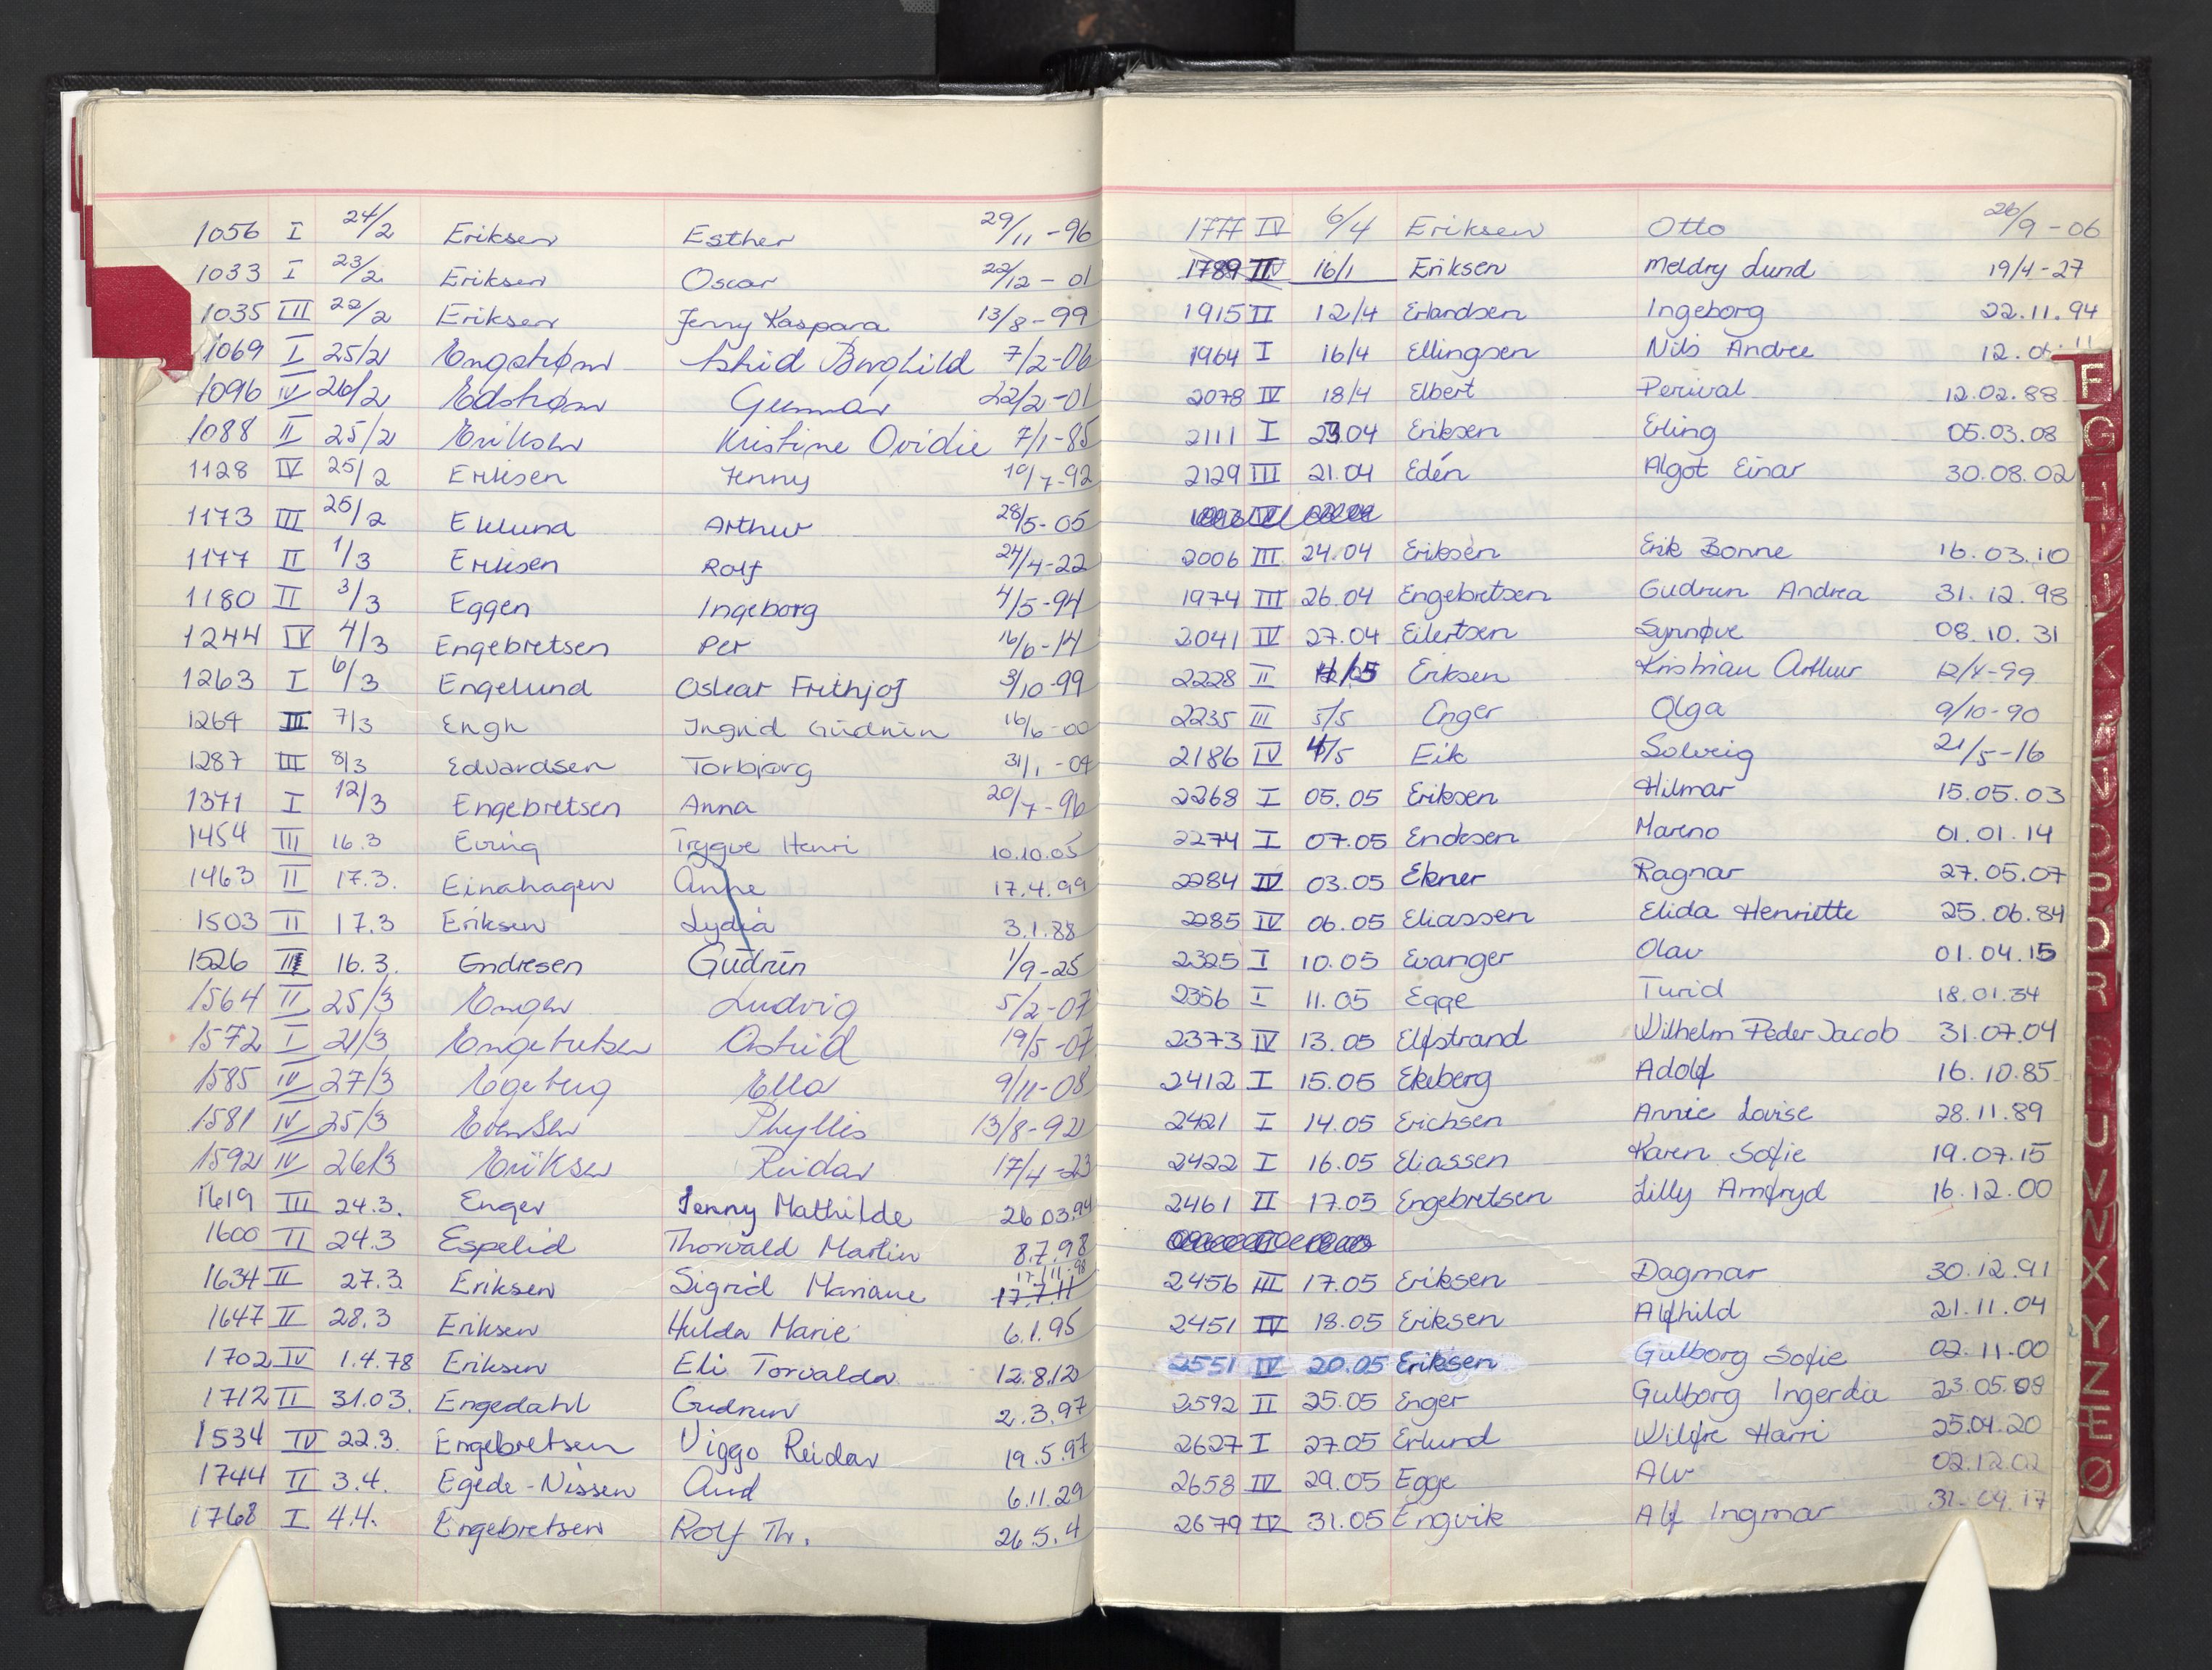 1056 I 24/2 Eriksen Esther 29/11-96
1033 I 23/2 Eriksen Oscar 22/12-01
1035 III 22/2 Eriksen Jenny Kaspara 13/8-99
1069 I 25/2 Engstrøm Astrid Borghild 7/2-06
1096 IV 26/2 Edstrøm Gunnar 22/2-01
1088 II 25/2 Eriksen Kristine Ovidie 7/1-85
1128 IV 25/2 Eriksen Jenny 10/7-92
1173 III 25/2 Eklund Arthur 28/5-05
1177 II 1/3 Eriksen Rolf 24/4-22
1180 II 3/3 Eggen Ingeborg 4/5-94
1244 IV 4/3 Engebretsen Per 16/6-14
1263 I 6/3 Engelund Oskar Frithjof 3/10-99
1264 III 7/3 Engh Ingrid Gudrun 16/6-00
1287 III 8/3 Edvardsen Torbjørg 31/1-04
1371 I 12/3 Engebretsen Anna 20/7-96
1454 III 16.3 Euring Trygve Henri 10.10.05
1463 II 17.3. Einahagen Anne 17.4.99
1503 II 17.3 Eriksen Lydia 3.1.88
1526 III 16.3. Endresen Gudrun 1/9-25
1564 II 25/3 Enger Ludvig 5/2-07
1572 I 21/3 Engebretsen Astrid 19/5-07
1585 IV 27/3 Egeberg Ella 9/11-08
1581 IV 25/3 Evensen Phyllis 13/8-92
1592 IV 26/3 Eriksen Reidar 17/4-23
1619 III 24.3. Enger Jenny Mathilde 26.03.94
1600 II 24.3 Espelid Thorvald Martin 8.7.98
1634 II 27.3. Eriksen Sigrid Mariane 17.7.11 17.11.98
1647 II 28.3 Eriksen Hulda Marie 6.1.95
1702 IV 1.4.78 Eriksen Eli Torvalda 12.8.12
1712 II 31.03. Engedahl Gudrun 2.3.97
1534 IV 22.3. Engebretsen Viggo Reidar 19.5.97
1744 II 3.4. Egede-Nissen Aud 6.11.29
1768 I 4.4. Engebretsen Rolf Th. 26.5.4
1777 IV 6/4 Eriksen Otto 26/9-06
1789 IV 16/1 Eriksen Meldry Lund 19/4-27
1915 II 12/4 Erlandsen Ingeborg 22.11.94
1964 I 16/4 Ellingsen Nils Andree 12.
2078 IV 18/4 Elbert Perival 12.02.88
2111 I 23.04 Eriksen Erling 05.03.08
2129 III 21.04 Edén Algot Einar 30.08.02
2006 III 24.04 Eriksen Erik Bonne 16.03.10
1974 III 26.04 Engebretsen Gudrun Andrea 31.12.98
2041 IV 27.04 Eilertsen Synnøve 08.10.31
2228 II 4/5 Eriksen Kristian Arthur 12/4-99
2235 III 5/5 Enger Olga 9/10-90
2186 IV 4/5 Eik Solveig 21/5-16
2268 I 05.05 Eriksen Hilmar 15.05.03
2274 I 07.05 Endresen Mareno 01.01.14
2284 IV 03.05 Ekner Ragnar 27.05.07
2285 IV 06.05 Eliassen Elida Henriette 25.06.84
2325 I 10.05 Evanger Olav 01.04.15
2356 I 11.05 Egge Turid 18.01.34
2373 IV 13.05 Elfstrand Wilhelm Peder Jacob 31.07.04
2412 I 15.05 Ekeberg Adolf 16.10.85
2421 I 14.05 Erichsen Annie Lovise 28.11.89
2422 I 16.05 Eliassen Karen Sofie 19.07.15
2461 II 17.05 Engebretsen Lilly Arnfryd 16.12.00
2456 III 17.05 Eriksen Dagmar 30.12.91
2451 IV 18.05 Eriksen Alfhild 21.11.04
2551 IV 20.05 Eriksen Gulborg Sofie 02.11.00
2592 II 25.05 Enger Gulborg Ingerda 23.05.09
2627 I 27.05 Erlund Wilfre Harri 25.04.20
2658 IV 29.05 Egge Alv 02.12.02
2679 IV 31.05 Engvik Alf Ingmar 31.04.17
F
G
H
K
N
O
P
R
U
V
W
X
Y
Z
Æ
Ø